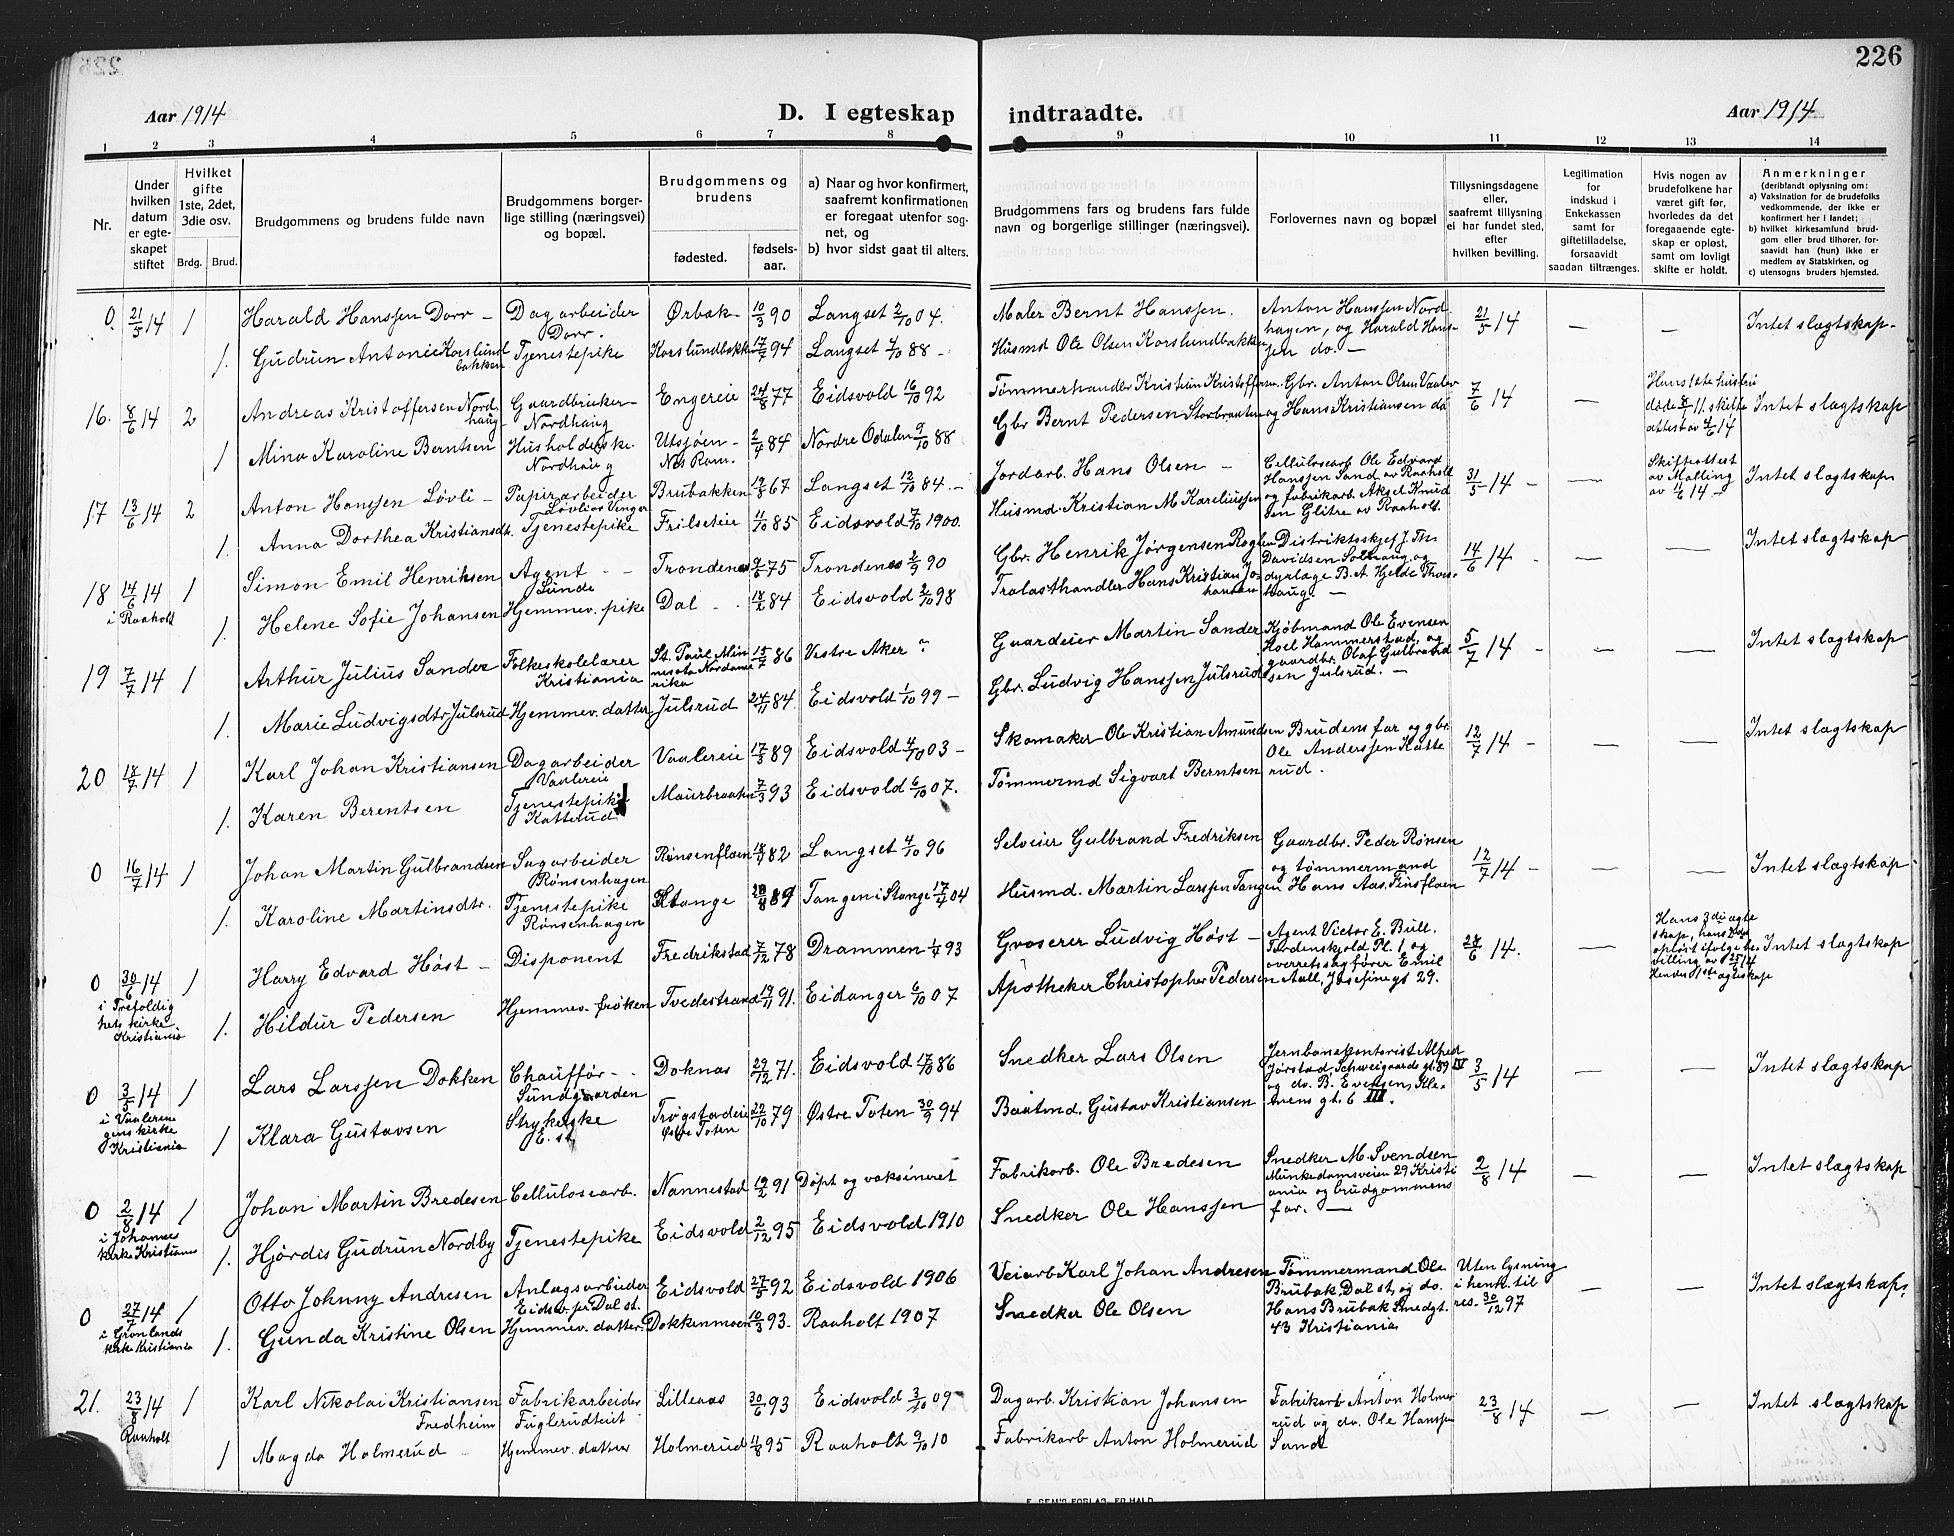 226
Aar 1914
D. I egteskap indtraadte.
Aar 1914
1 2 3 4 5 6 7 8 9 10 11 12 13 14
Nr.
Under hvilken datum er egteskapet stiftet
Hvilket gifte 1ste, 2det, 3die osv.
Brdg. Brud.
Brudgommens og brudens fulde navn
Brudgommens borgerlige stilling (næringsvei) og bopæl.
Brudgommens og brudens
fødested.
fødselsaar.
a) Naar og hvor konfirmert, saafremt konfirmationen er foregaat utenfor sognet, og
b) hvor sidst gaat til alters.
Brudgommens fars og brudens fars fulde navn og borgerlige stillinger (næringsvei).
Forlovernes navn og bopæl
Tillysningsdagene eller, saafremt tillysning ei har fundet sted, efter hvilken bevilling.
Legitimation for indskud i Enkekassen samt for giftetilladelse, forsaavidt saadan tiltrænges.
Hvis nogen av brudefolkene har været gift før, hvorledes da det foregaaende egteskap er opløst, samt om lovligt skifte er holdt.
Anmerkninger
(deriblandt oplysning om:
a) Vaksination for de brudefolks vedkommende, der ikke er konfirmert her i landet;
b) hvilket kirkesamfund brudgom eller brud tilhører, forsaavidt han (hun) ikke er medlem av Statskirken, og
c) utensogns bruders hjemsted.
0. 21/5 14 1 Harald Hanssen Dorr Dagarbeider Dorr. Ørbak 10/3 90 Langset 2/10 04. Maler Bernt Hanssen. Anton Hanssen Nordhagen, og Harald Hanssen do. 21/5 14 Intet slægtskap
1. Gudrun Antonie Korslundbakken Tjenestepike Korslundbakken 94 Langset 88 Husmd Ole Olsen Korslundbakken
16. 8/6 14 2 Andreas Kristoffersen Nordhaug Gaardbruker Nordhaug Engereie 24/8 77 Eidsvold 16/10 92 Tømmerhandler Kristian Kristoffersen Gbr. Anton Olsen Vaaler og Hans Kristiansen do 7/6 14 Hans 1ste hustru døde 8/11. skifteattest av 4/6 14 Intet slægtskap
1 Mina Karoline Berntsen Husholderske Nordhaug Utsjøen Nes Rom. 2/4 84 Nordre Odalen 9/10 88 Gbr Bernt Pedersen Storbraaten
17 13/6 14 2 Anton Hanssen Løvli Papirarbeider Løvli av Vinger Brubakken 19/8 67 Langset 12/10 84. Jordarb. Hans Olsen Cellulosearb. Ole Edvard Hanssen Sand av Raaholt og fabrikarb. Aksel Knudsen Glitre av Raaholt. 31/5 14 Skifteattest av Matling av 11/6 14 Intet slægtskap
1. Anna Dorthea Kristiansdtr. Tjenestepike Frilseteie 11/10 85 Eidsvold 7/10 1900. Husmd. Kristian M. Kareliussen
18 14/6 14 i Raaholt 1 Simon Emil Henriksen Agent Sunde Trondenes 75 Trondenes 2/9 90 Gbr. Henrik Jørgensen Distriktsskjef J. Th. Davidsen Solhaug og dyrlæge B. A. Hjelde Thorshaug. 14/6 14 Intet slægtskap
1. Helene Sofie Johansen Hjemmev. pike Dal 18/2 84 Eidsvold 2/10 98 Tralasthandler Hans Kristian Johansen
19 7/7 14 1 Arthur Julius Sander Folkeskolelærer Kristiania St. Paul Minnesota Nordamerika 15/7 86 Vestre Aker ? Gaardeier Martin Sander Kjøbmand Ole Evensen Hoel Hammerstad, og gaardbr. Olaf Gulbrandsen Julsrud. 5/7 14 Intet slægtskap
1. Marie Ludvigsdtr. Julsrud Hjemmev. datter Julsrud 24/11 84. Eidsvold 1/10 99 Gbr. Ludvig Hanssen Julsrud
20 18/7 14 1 Karl Johan Kristiansen Dagarbeider Vaalereie Vaalereie 17/3 89 Eidsvold 4/10 03 Skomaker Ole Kristian Amundsen Brudens far og gbr. Ole Anderssen Katterud. 12/7 14 Intet slægtskap
1. Karen Berentsen Tjenestepike Katterud Maurbraaten 7/3 93 Eidsvold 6/10 07. Tømmermd Sigvart Berntsen
0 16/7 14 1 Johan Martin Gulbrandsen Sagarbeider Rønsenhagen Rønsenfloen 82 Langset 4/10 96 Selveier Gulbrand Fredriksen Gaardbr. Peder Rønsen og tømmermand Hans Aas. Finsfloen 12/7 14 Intet slægtskap
1. Karoline Martinsdtr. Tjenestepike Rønsenhagen Stange 20/8 89 Tangen i Stange 17/4 04 Husmd. Martin Larssen Tangen
0 30/6 14 i Trefoldighets kirke. Kristiania 1 Harry Edvard Høst Disponent Fredrikstad 7/12 78 Drammen 1/4 93 Groserer Ludvig Høst Agent Victor E. Bull. Tordenskjold Pl. 1 og overretssagfører Emil Aall, Josefinegt 29. 28/6 14. Hans 3die egteskap, opløst ifølge bevilling av 14 Hendes 1ste egteskap Intet slægtskap
1. Hildur Pedersen Hjemmev. frøken Tvedestrand 19/11 91. Eidanger 6/10 07 Apotheker Christopher Pedersen
0 3/5 14 i Vaalerengens kirke Kristiania 1 Lars Larssen Dokken Chauffør Sundgaarden Doknas 29/12 71. Eidsvold 17/10 86 Snedker Lars Olsen Jernbanekontorist Alfred Jørstad, Schweigaardsgt. 89 IV og do. B. Evensen, gt. 6 III. 3/5 14 Intet slægtskap
1 Klara Gustavsen Strykerske E. st. Trøgstadeie Østre Toten 22/10 79 Østre Toten 30/9 94 Baatmd. Gustav Kristiansen
0 2/8 14 i Johannes kirke Kristiania 1 Johan Martin Bredesen Cellulosearb. Nannestad 19/2 91 Døpt og vaksineret Fabrikarb. Ole Bredesen Snedker M. Svendsen Munkedamsveien 29 Kristiania og brudgommens far. 2/8 14 Intet slægtskap
1. Hjørdis Gudrun Nordby Tjenestepike Eidsvold 2/12 95 Eidsvold 1910 Snedker Ole Hanssen
0 27/7 14 i Grønlands kirke Kristiania 1 Otto Johnny Andresen Anlægsarbeider Eidsv. pr Dal st. Eidsvold 27/5 92 Eidsvold 1906 Veiarb Karl Johan Andresen Tømmermand Ole Brubak, Dal st, og do. Hans Brubak Smedgt. 43 Kristiania Uten lysning i henh. til res. 30/12 97 Intet slægtskap.
1. Gunda Kristine Olsen Hjemmev. datter. Dokkenmoen 10/3 93. Raaholt 1907 Snedker Ole Olsen
21. 23/8 14 Raaholt 1 Karl Nikolai Kristiansen Fredheim Fabrikarbeider Fuglerudteit Lilleaas 30/6 93 Eidsvold 3/10 09 Dagarb. Kristian Johansen Fabrikarb Anton Holmerud og do. Ole Hanssen Sand 23/8 14 Intet slægtskap
1 Magda Holmerud Hjemmev. datter Holmerud 11/8 95 Raaholt 9/10 10 Fabrikarb Anton Holmerud